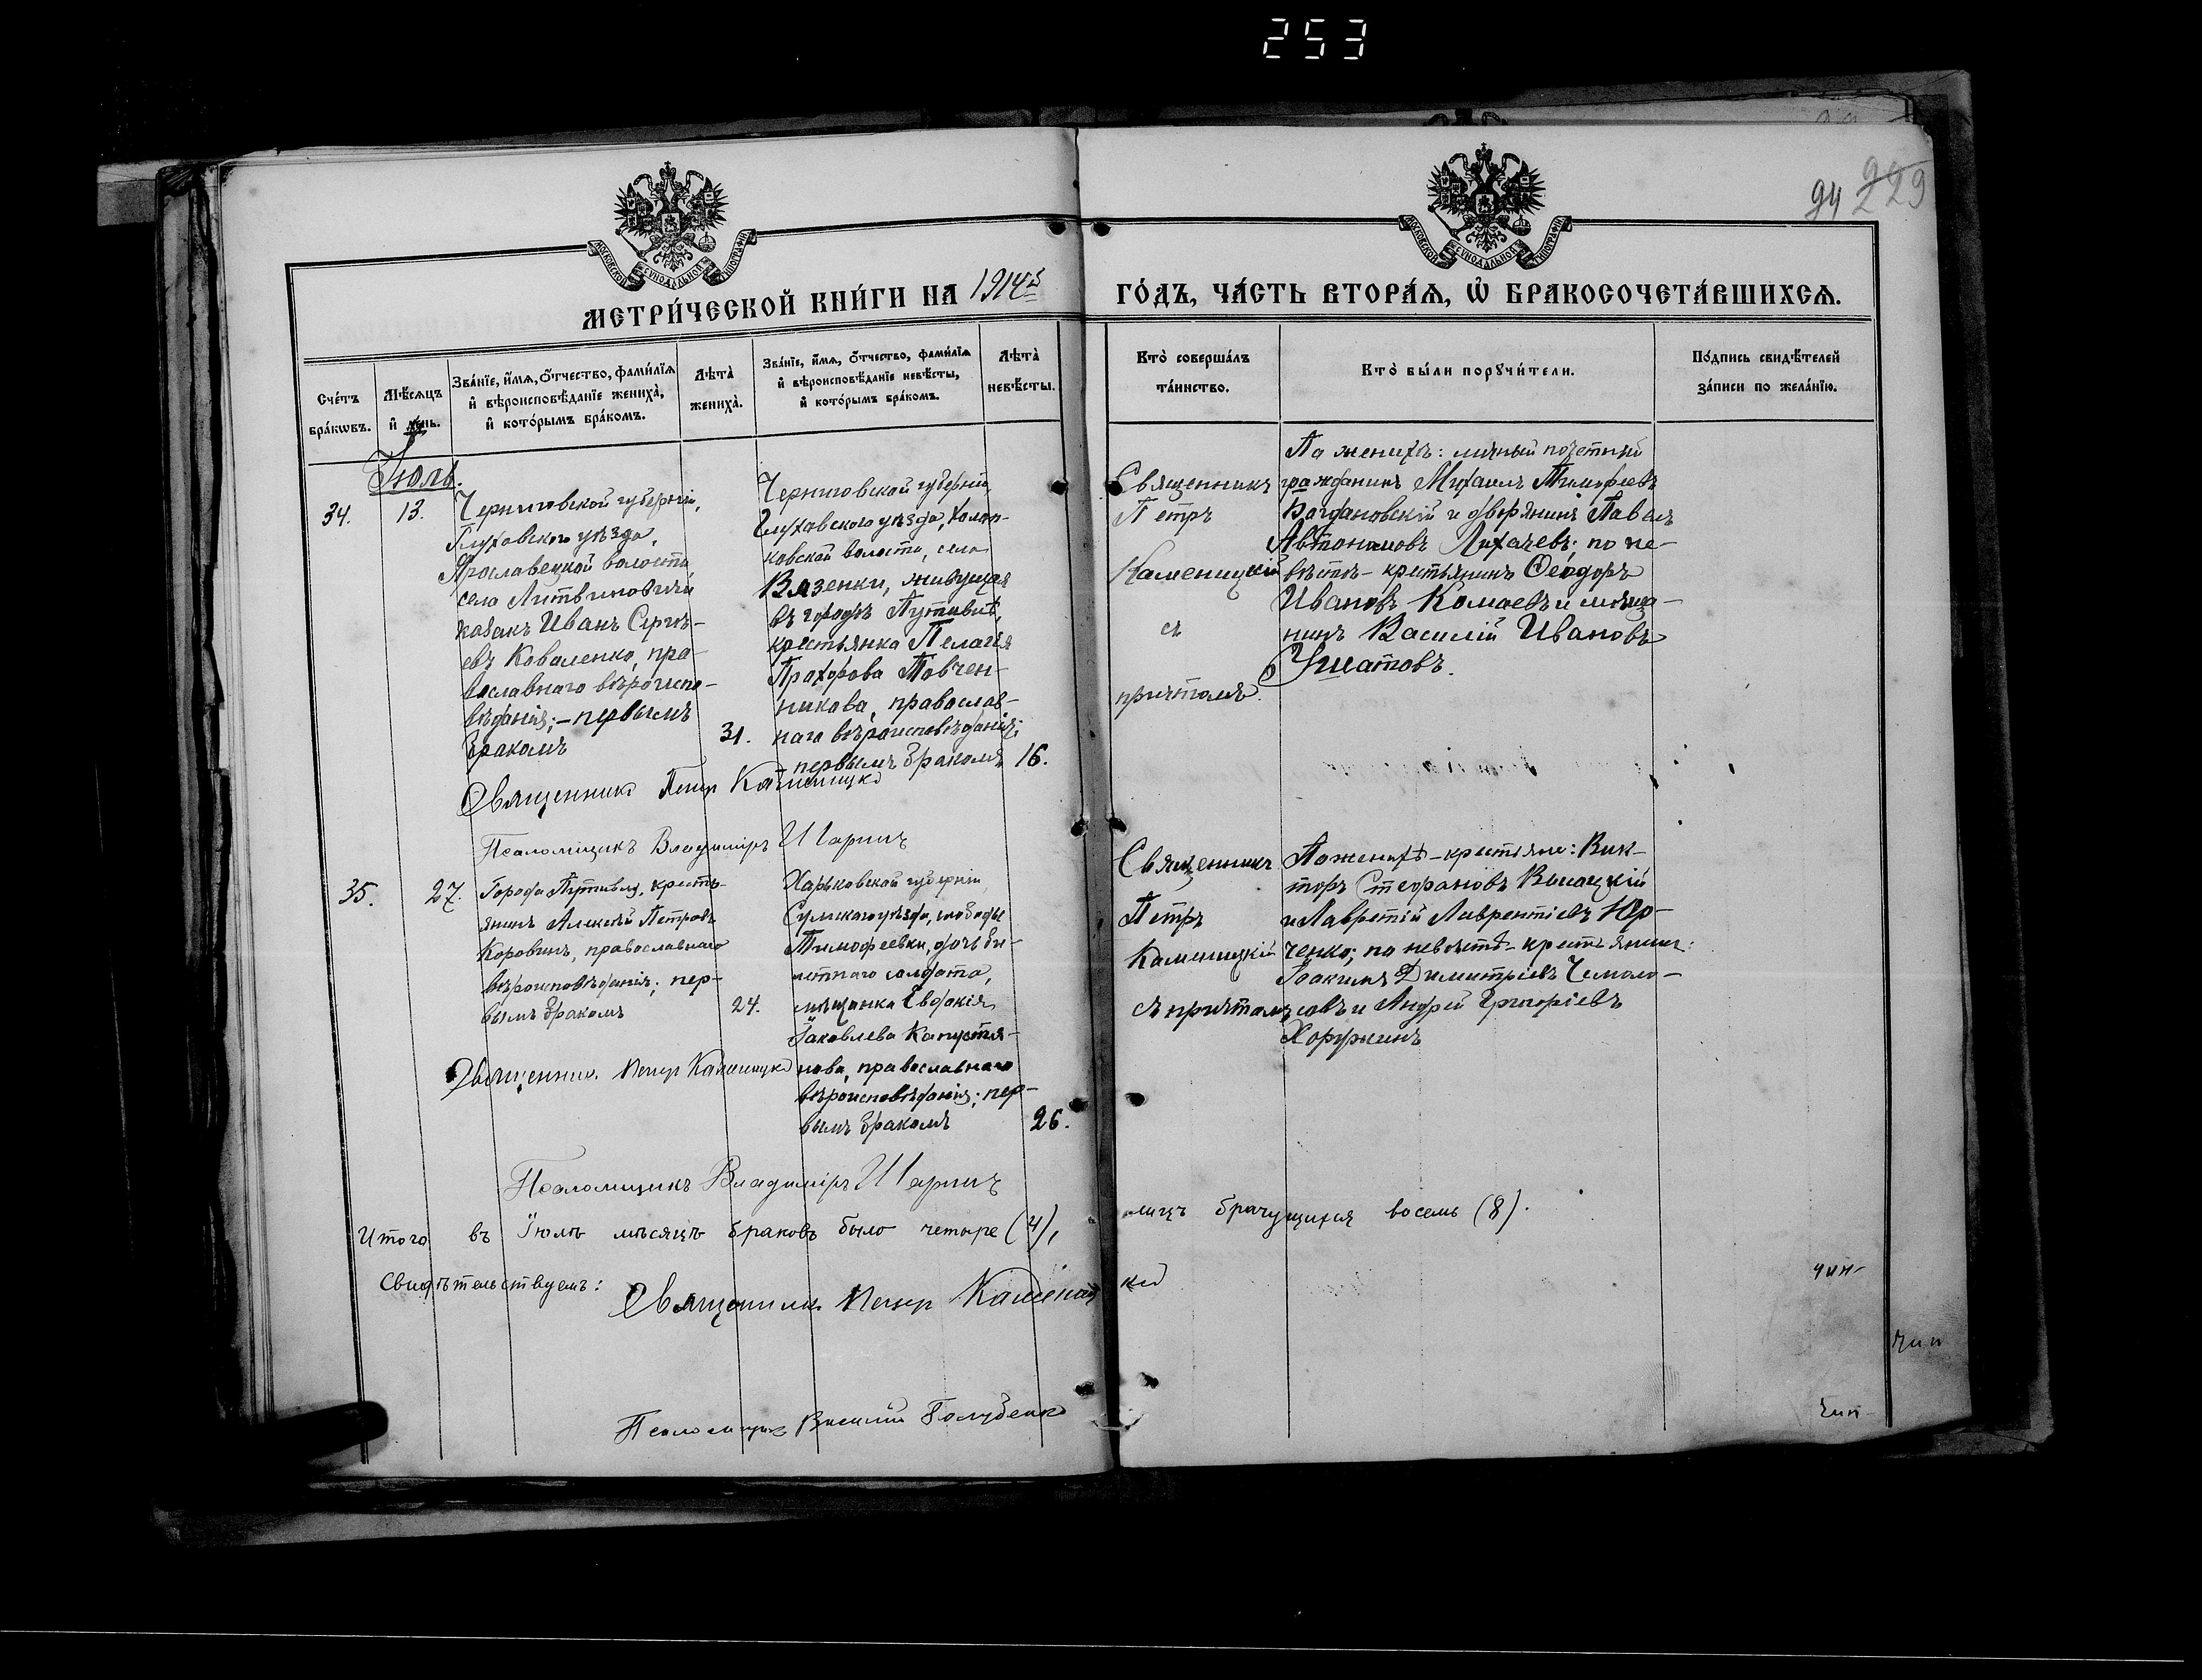 253
94 229
МОСКОВСКОЙ СѴНОДАЛЬНОЙ ТИПОГРАФІИ
МОСКОВСКОЙ СѴНОДАЛЬНОЙ ТИПОГРАФІИ
МЕТРИ́ЧЕСКОЙ КНИ́ГИ НА 1914й ГО́ДЪ, ЧА́СТЬ ВТОРА́Я, Ѡ БРАКОСОЧЕТА́ВШИХСЯ.
Сче́тъ
бра́кѡвъ.
Мѣ́сяцъ
и҆ де́нь.
Зва́нїе, и҆́мя, ѻ҆́тчество, фами́лїя
и҆ вѣроисповѣ́данїе жениха̀,
и҆ кото́рымъ бра́комъ.
Лѣ́та̀
жениха̀.
Зва́нїе, и҆́мя, ѻ҆́тчество, фами́лїя
и҆ вѣроисповѣ́данїе невѣ́сты,
и҆ кото́рымъ бра́комъ.
Лѣ́та̀
невѣ́сты.
Кто̀ соверша́лъ
та́инство.
Кто̀ бы́ли порꙋчи́тели.
По́дпись свидѣ́телей
за́писи по жела́нїю.
Іюль.
34.
13.
Черниговской губерніи,
Глуховского уѣзда,
Ярославецкой волости
села Литвиновичи
козакъ Иванъ Сергѣ-
евъ Коваленко, пра-
вославнаго вѣроиспо-
вѣданія; – первымъ
бракомъ
31.
Черниговской губерніи,
Глуховского уѣзда, Холоп-
ковской волости, села
Вязенки, живущая
въ городѣ Путивлѣ,
крестьянка Пелагія
Прохорова Повчен-
никова, православ-
наго вѣроисповѣданія;
первымъ бракомъ
16.
Священникъ
Петръ
Каменицкій
съ
причтомъ.
По женихѣ: личный почетный
гражданинъ Михаилъ Тимофеевъ
Богдановскій и дворянинъ Павелъ
Автономовъ Лихачевъ; по не-
вѣстѣ – крестьянинъ Ѳеодоръ
Ивановъ Комаевъ и мѣща-
нинъ Василій Ивановъ
Ушатовъ.
Священникъ Петръ Каменицкій
Псаломщикъ Владиміръ Шаринъ
35.
27.
Города Путивля, кресть-
янинъ Алексѣй Петровъ
Коровинъ, православнаго
вѣроисповѣданія; пер-
вымъ бракомъ
24.
Харьковской губерніи
Сумскаго уѣзда, слободы
Тимофеевки, дочь би-
летнаго солдата,
мѣщанка Евдокія
Іаковлева Капустя-
нова, православнаго
вѣроисповѣданія; пер-
вымъ бракомъ
26.
Священникъ
Петръ
Каменицкій
съ причтомъ
По женихѣ – крестьяне: Вик-
торъ Стефановъ Высоцкій
и Лаврентій Лаврентіевъ Юр-
ченко; по невѣстѣ – крестьянин:
Іоакимъ Димитріевъ Чемоло-
совъ и Андрей Григоріевъ
Хоружинъ
Священникъ Петръ Каменицкій
Псаломщикъ Владиміръ Шаринъ
Итого въ Іюлѣ мѣсяцѣ браковъ было четыре (4), лицъ брачущихся восемь (8).
Свидѣтельствуемъ:
Священникъ Петръ Каменицкій
Псаломщикъ Василій Голубенко